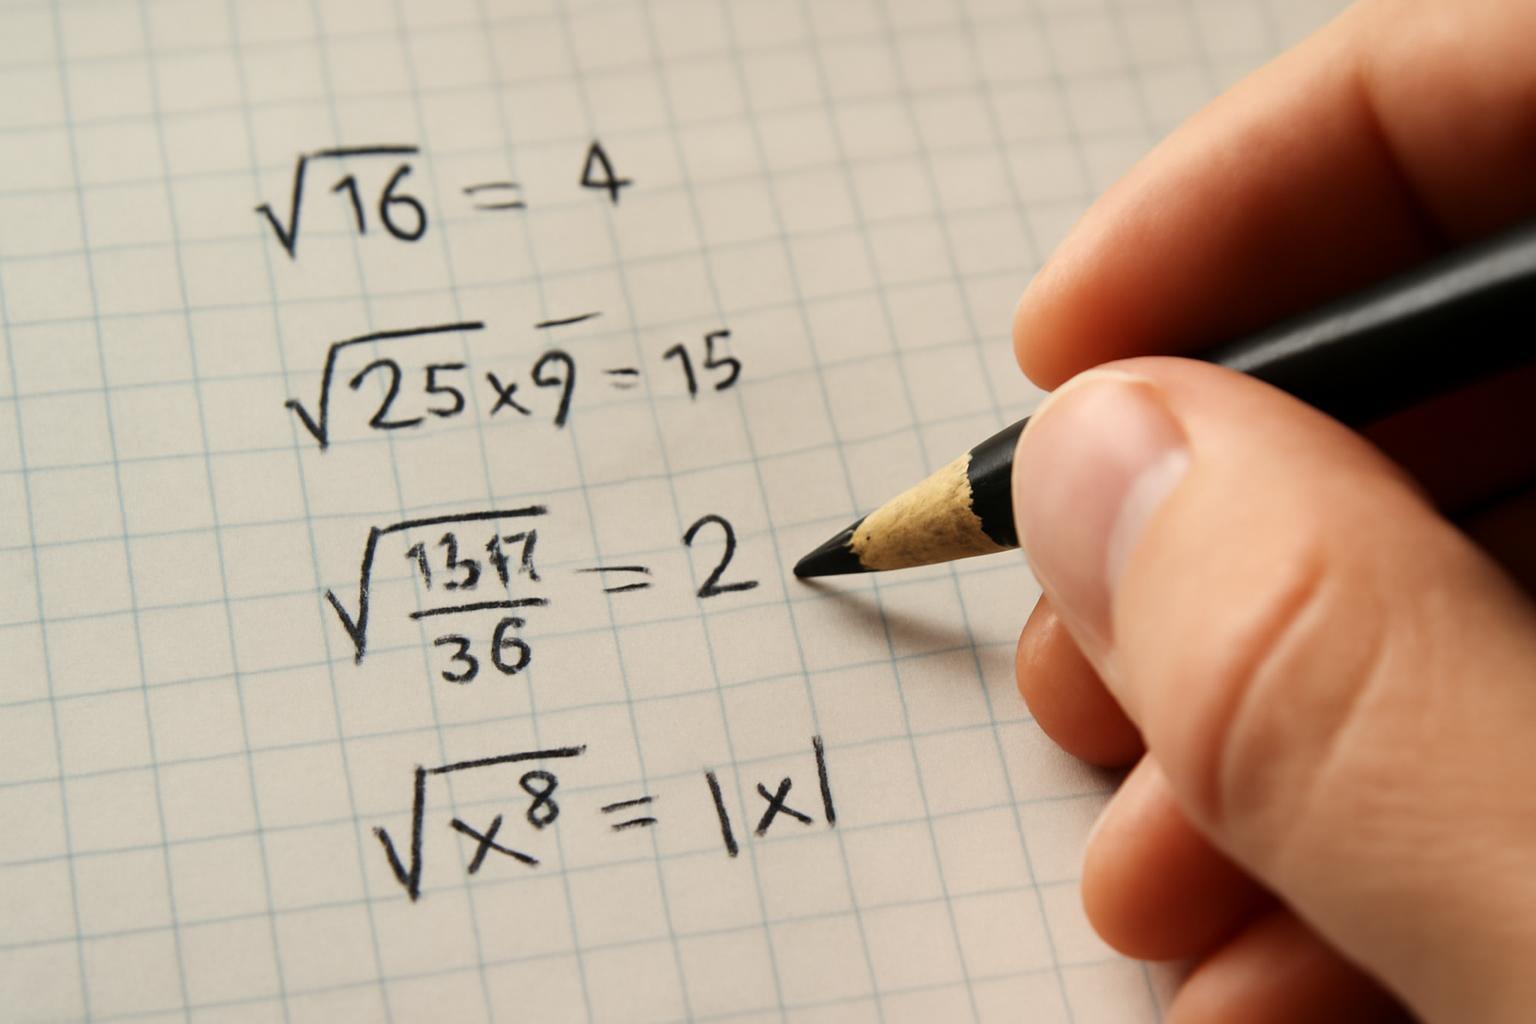 √16 = 4
√25×9 = 15
√ /36 = 2
√x⁸ = |x|